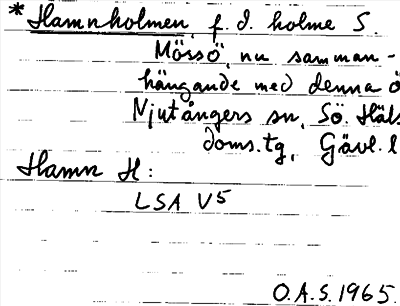 *Hamnholmen, f.d. holme S.
Mössö, nu samman-
hängande med denna ö
Njutångers sn, Sö. Häls
doms.tg, Gävl. l
Hamn H:
LSA V5
O.A.S. 1965.